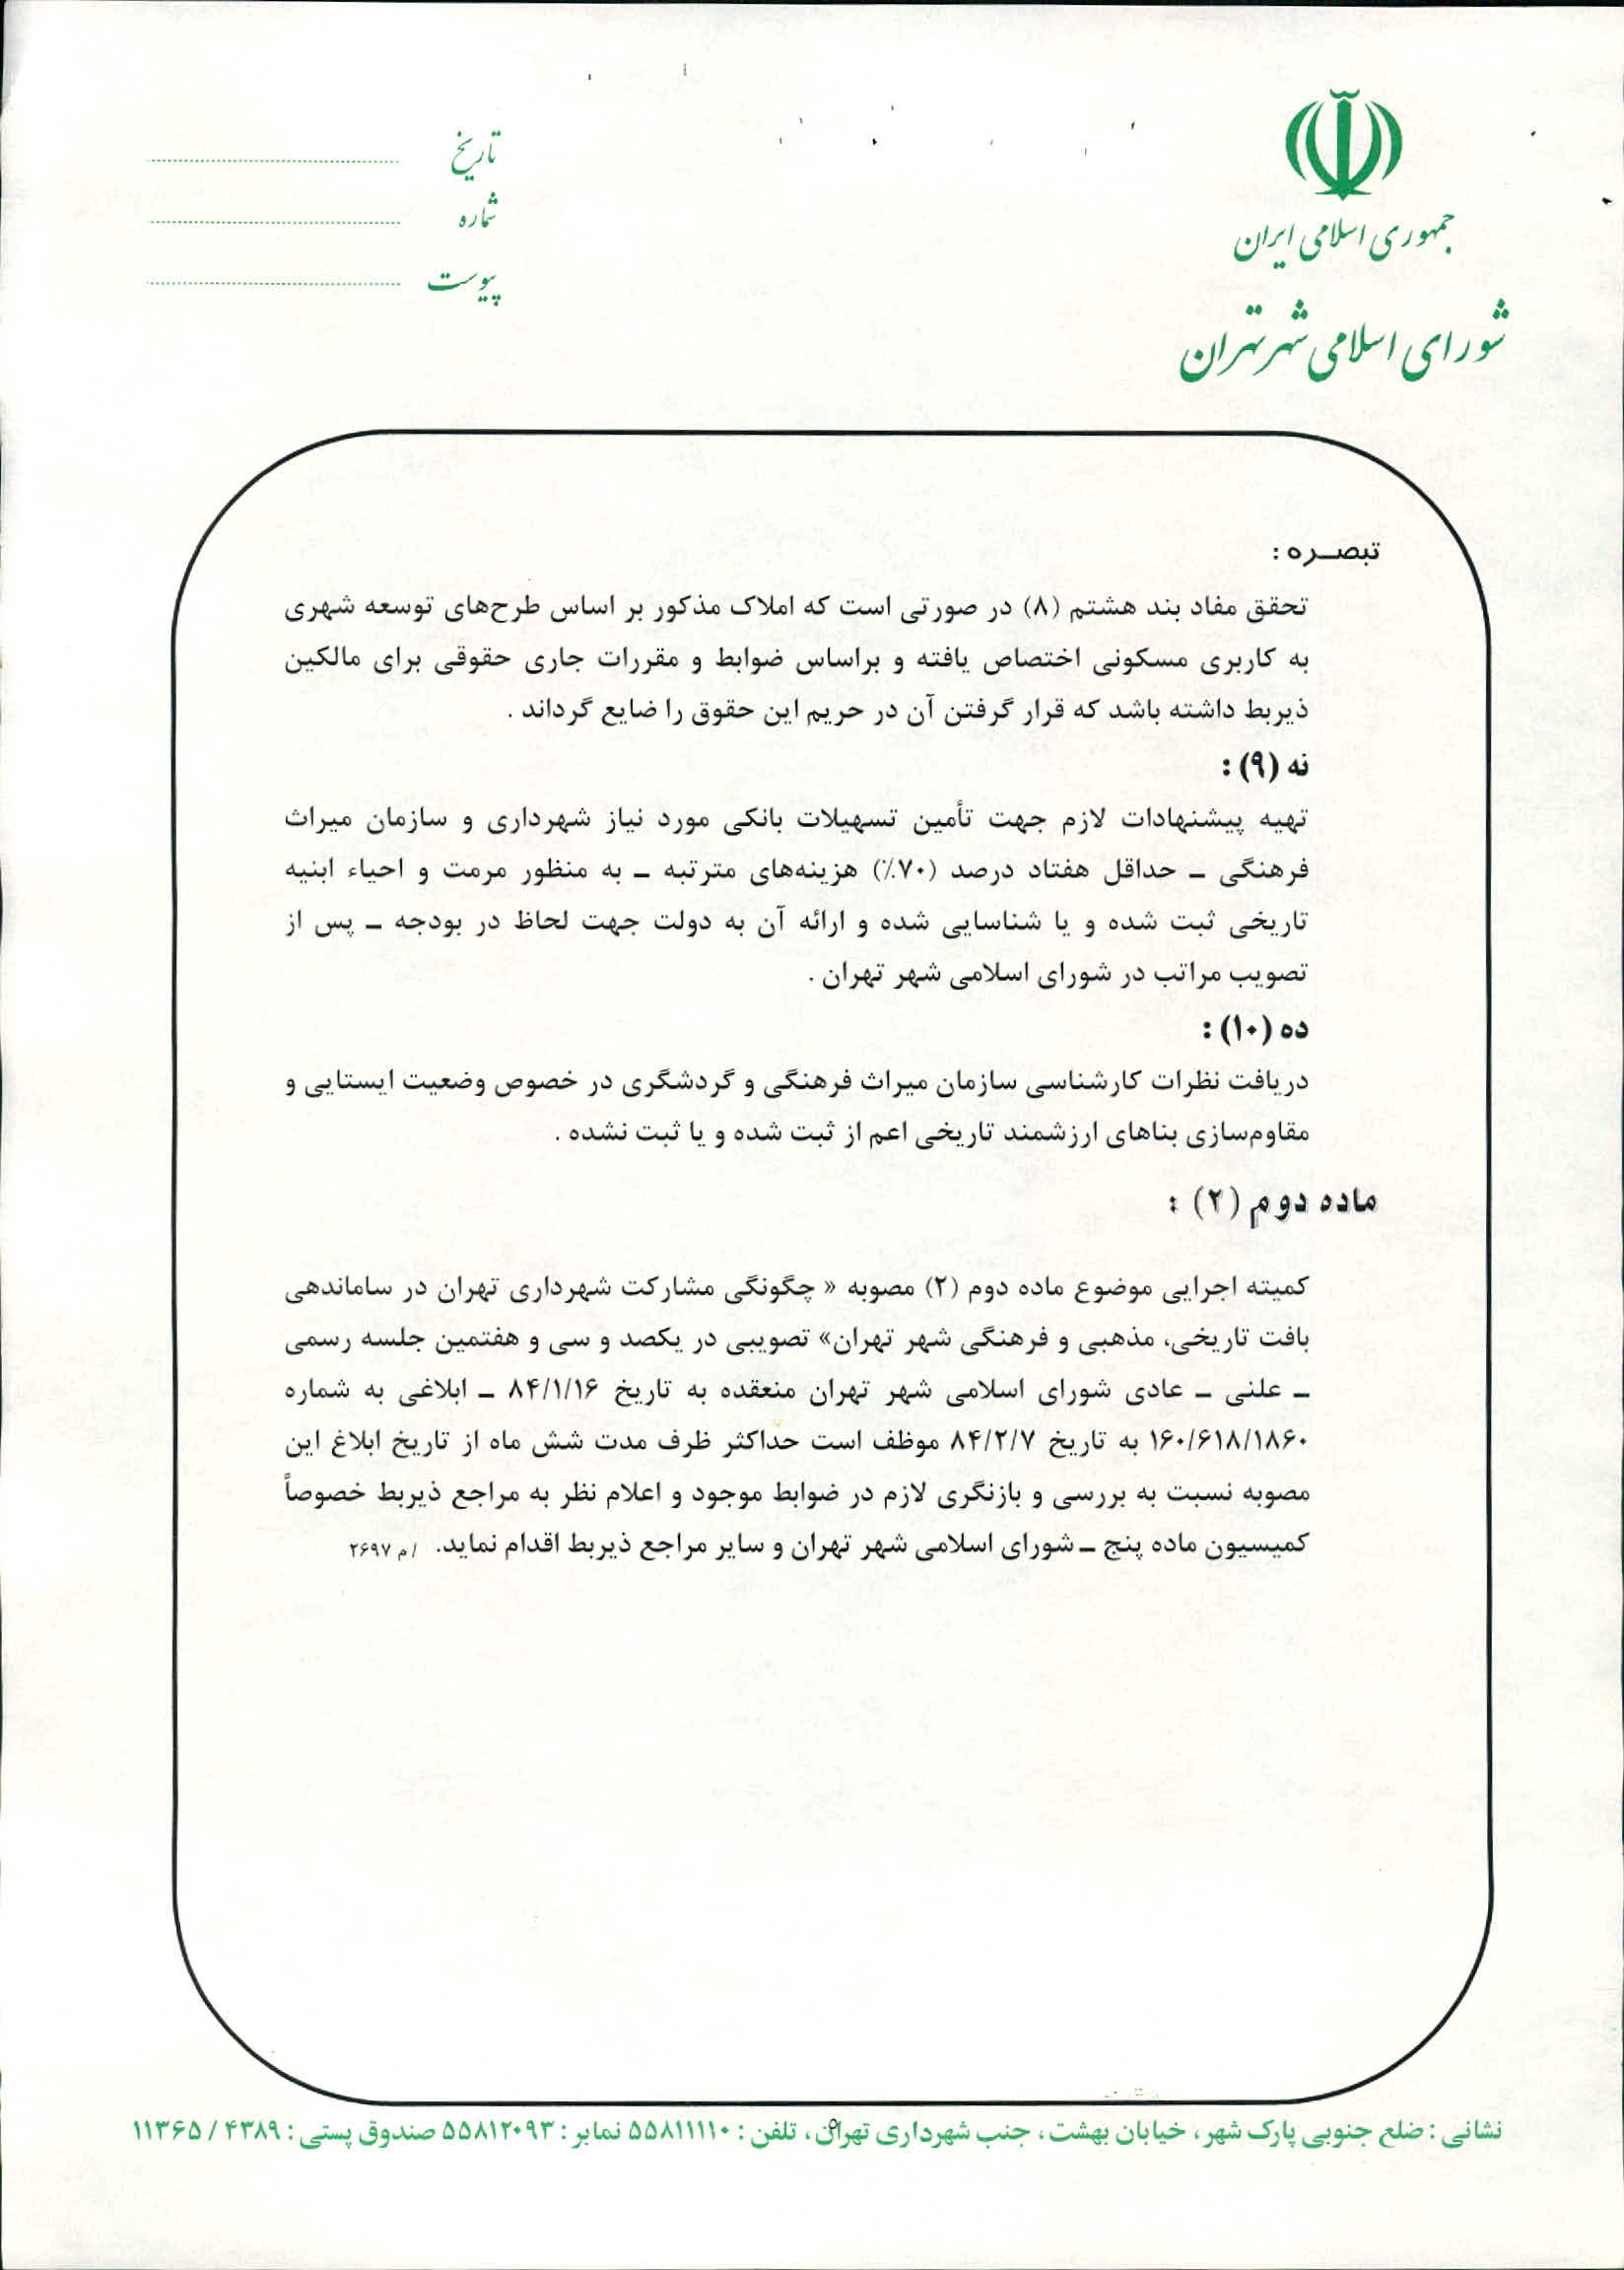 جمهوری اسلامی ایران
شورای اسلامی شهر تهران
تاریخ
شماره
پیوست
تبصره :
تحقق مفاد بند هشتم (۸) در صورتی است که املاک مذکور بر اساس طرح‌های توسعه شهری
به کاربری مسکونی اختصاص یافته و براساس ضوابط و مقررات جاری حقوقی برای مالکین
ذیربط داشته باشد که قرار گرفتن آن در حریم این حقوق را ضایع گرداند .
نه (۹) :
تهیه پیشنهادات لازم جهت تأمین تسهیلات بانکی مورد نیاز شهرداری و سازمان میراث
فرهنگی ـ حداقل هفتاد درصد (۷۰٪) هزینه‌های مترتبه ـ به منظور مرمت و احیاء ابنیه
تاریخی ثبت شده و یا شناسایی شده و ارائه آن به دولت جهت لحاظ در بودجه ـ پس از
تصویب مراتب در شورای اسلامی شهر تهران .
ده (۱۰) :
دریافت نظرات کارشناسی سازمان میراث فرهنگی و گردشگری در خصوص وضعیت ایستایی و
مقاوم‌سازی بناهای ارزشمند تاریخی اعم از ثبت شده و یا ثبت نشده .
ماده دوم (۲) :
کمیته اجرایی موضوع ماده دوم (۲) مصوبه « چگونگی مشارکت شهرداری تهران در ساماندهی
بافت تاریخی، مذهبی و فرهنگی شهر تهران» تصویبی در یکصد و سی و هفتمین جلسه رسمی
ـ علنی ـ عادی شورای اسلامی شهر تهران منعقده به تاریخ ۸۴/۱/۱۶ ـ ابلاغی به شماره
۱۶۰/۶۱۸/۱۸۶۰ به تاریخ ۸۴/۲/۷ موظف است حداکثر ظرف مدت شش ماه از تاریخ ابلاغ این
مصوبه نسبت به بررسی و بازنگری لازم در ضوابط موجود و اعلام نظر به مراجع ذیربط خصوصاً
کمیسیون ماده پنج ـ شورای اسلامی شهر تهران و سایر مراجع ذیربط اقدام نماید. /م ۲۶۹۷
نشانی : ضلع جنوبی پارک شهر، خیابان بهشت، جنب شهرداری تهران، تلفن : ۵۵۸۱۱۱۱۰ نمابر : ۵۵۸۱۲۰۹۳ صندوق پستی : ۴۳۸۹ / ۱۱۳۶۵